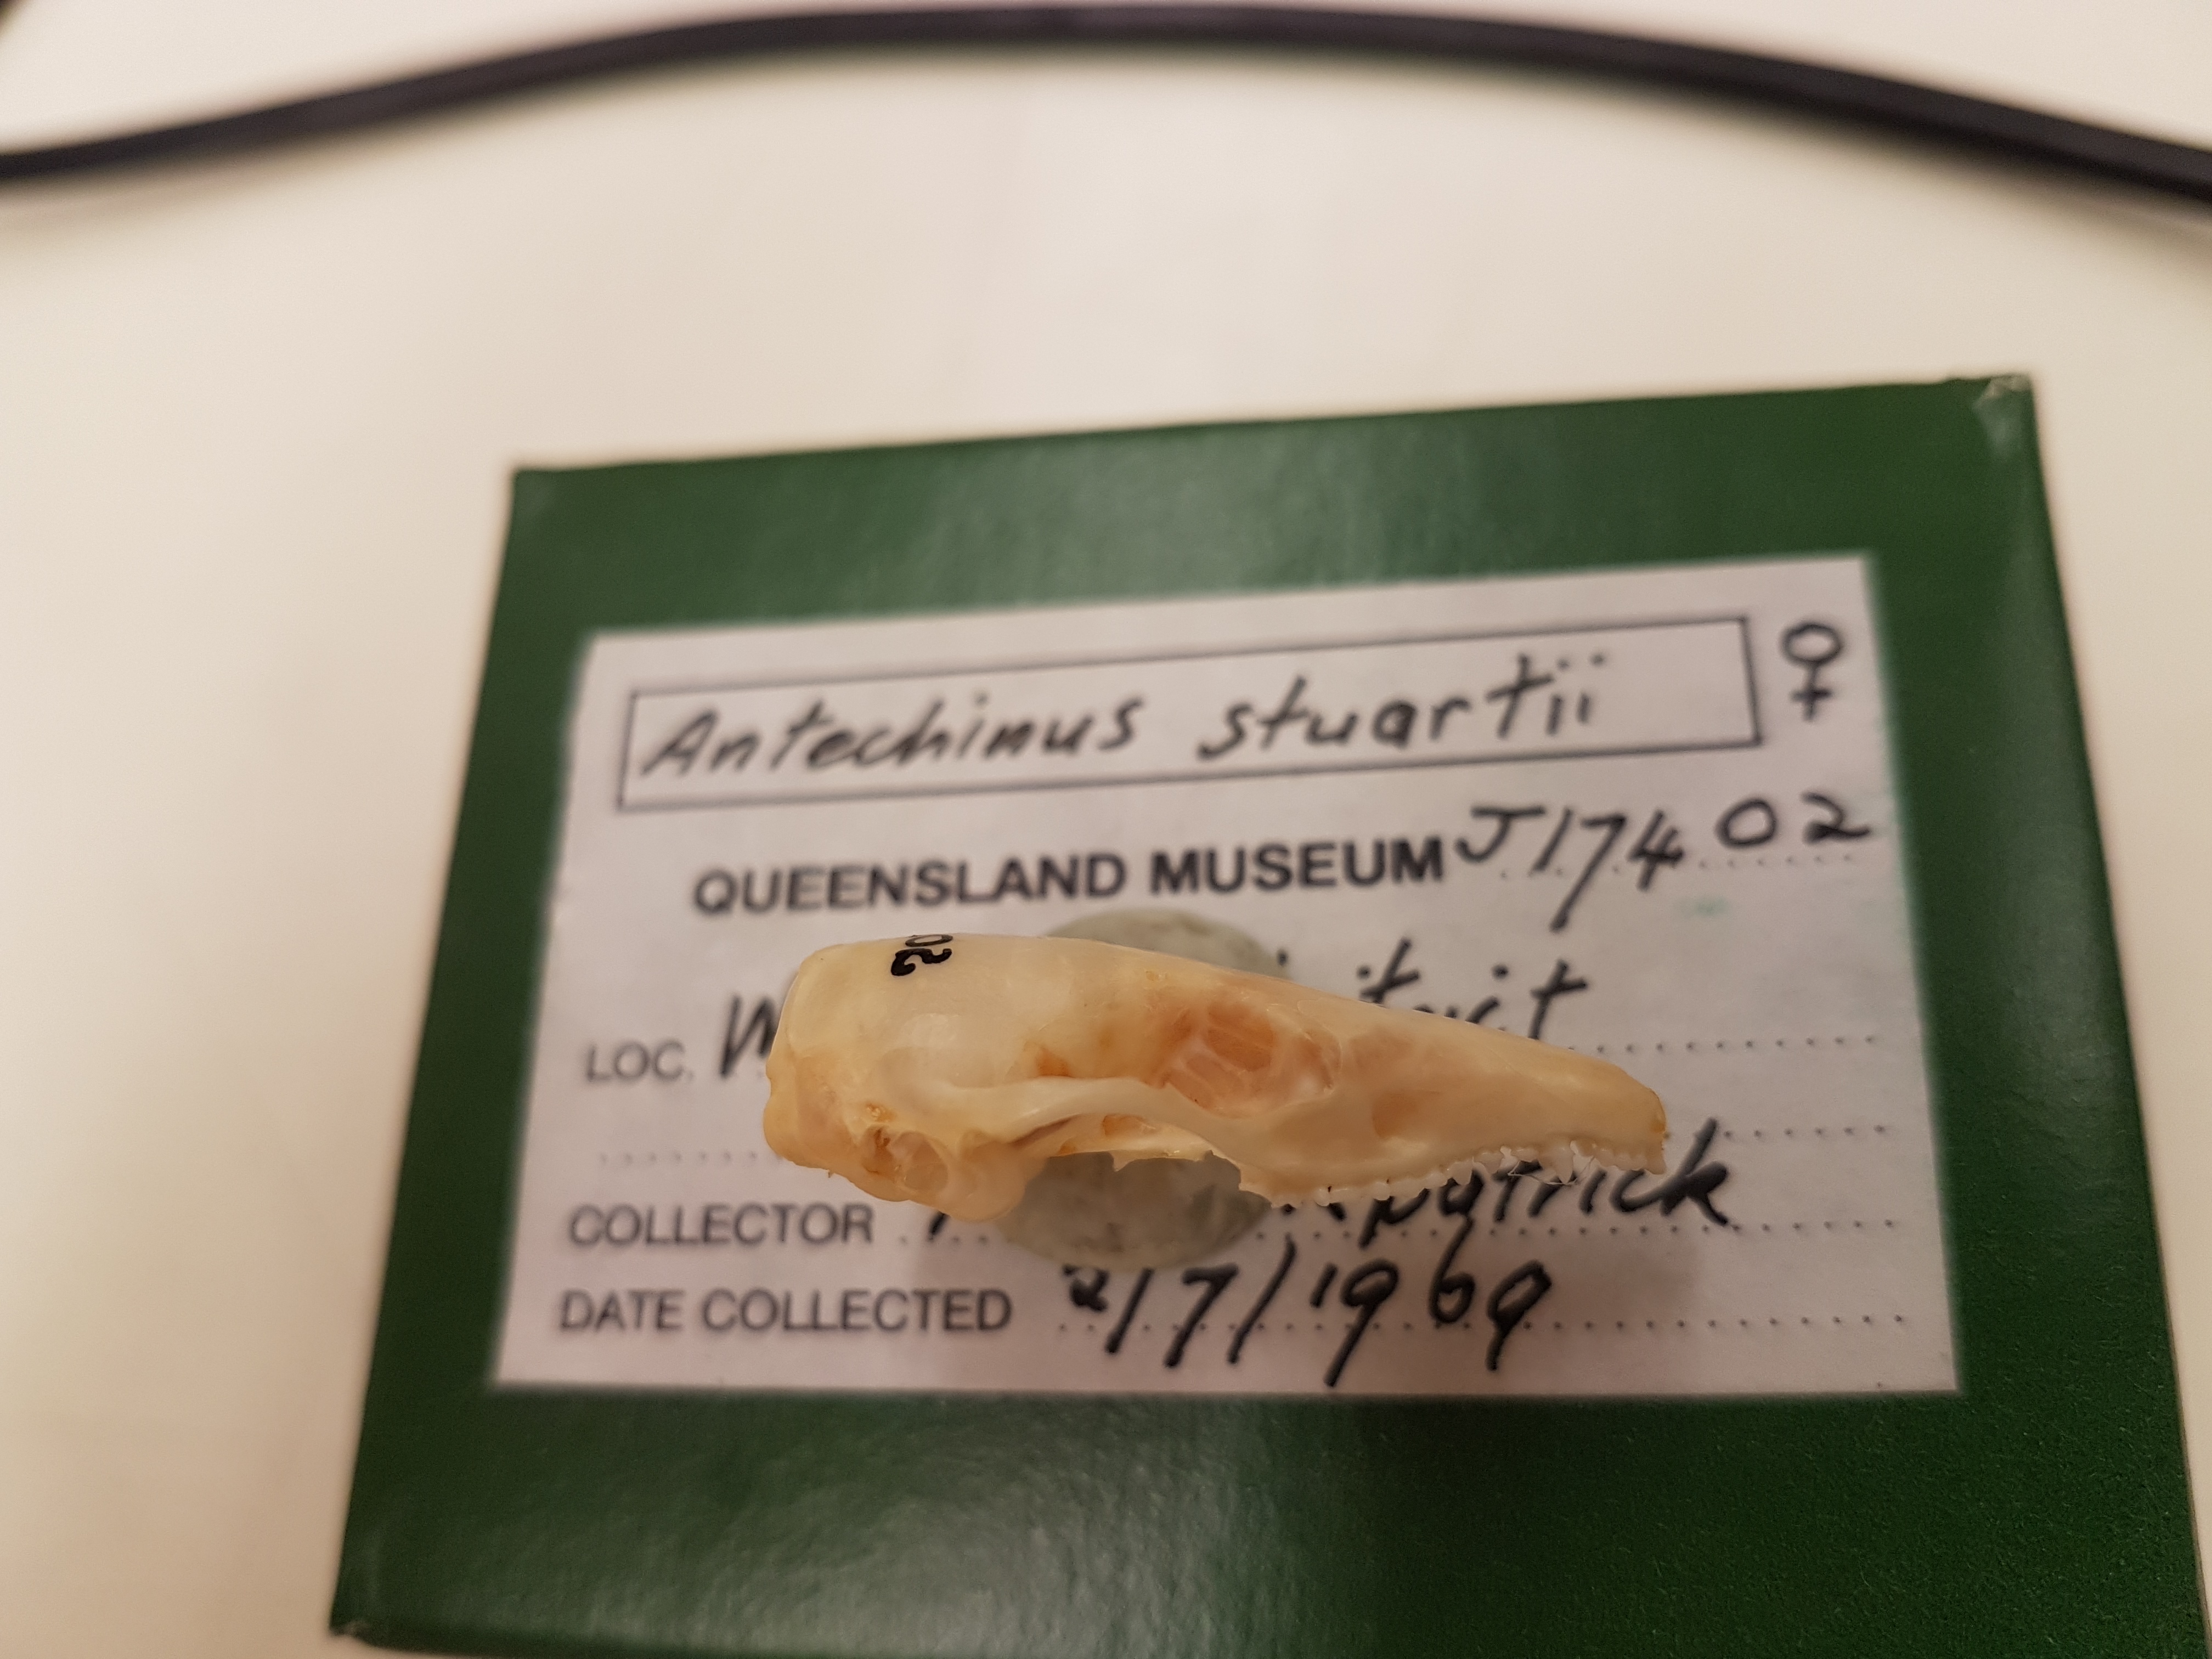 Antechinus stuartii ♀
QUEENSLAND MUSEUM J17402
LOC.
COLLECTOR
DATE COLLECTED 2/7/1969